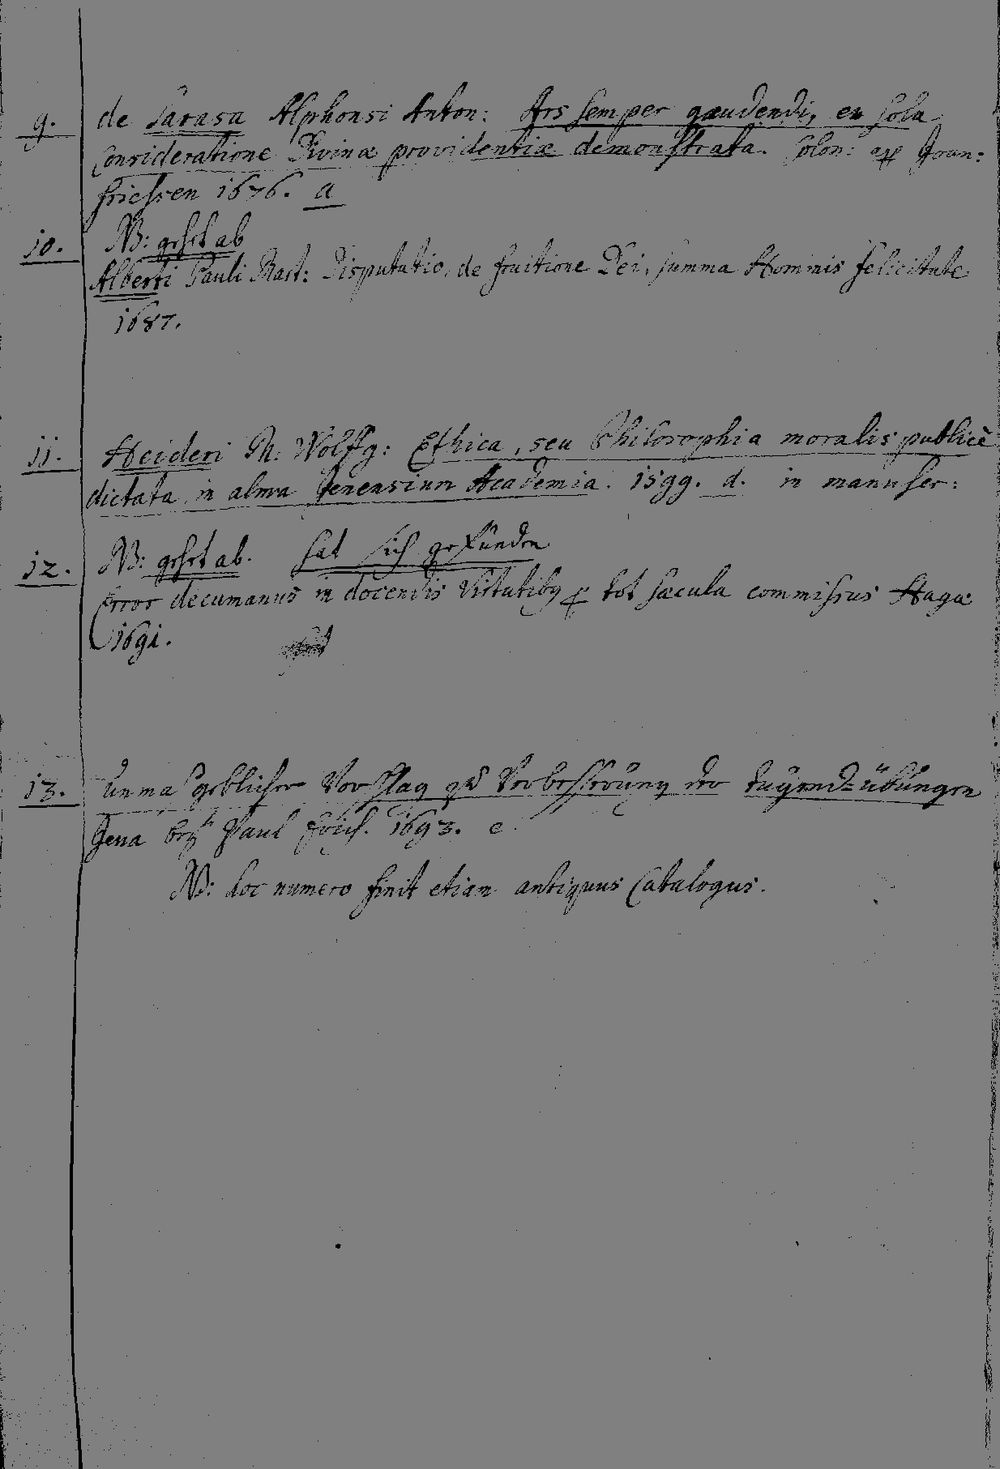 9. de Sarasa Alphonsi Anton: Ars semper gaudendi, ex sola
Consideratione Divinæ providentiæ demonstrata. Colon: ap Joan:
Friessen 1676. a
10. NB: gehet ab
Alberti Pauli Mart: Disputatio, de fruitione Dei, summa Hominis felicitate
1687.
11. Heideri M. Wolffg: Ethica, seu Philosophia moralis publicè
dictata in alma Ienensium Academia. 1599. d. in manuscr:
12. NB: gehet ab. hat sich gefunden
Error decumanus in docendis Virtutibq tot sæcula commissus Hagæ
1691.
13. Unmasgeblicher Vorschlag zu Verbesserung der tugend=übungen
Jena bey Paul Ehrich. 1693. e
NB: hoc numero finit etiam antiquus Catalogus.